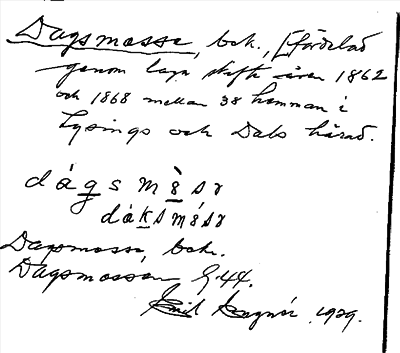 Dagsmosse, bok., [fördelad
genom laga skifte åren 1862
och 1868 mellan 38 hemman i
Lysings och Dals härad.
dágsmòsɤ
dáksmósɤ
Dagsmosse, bok.
Dagsmossen G.44.
Emil 1929.